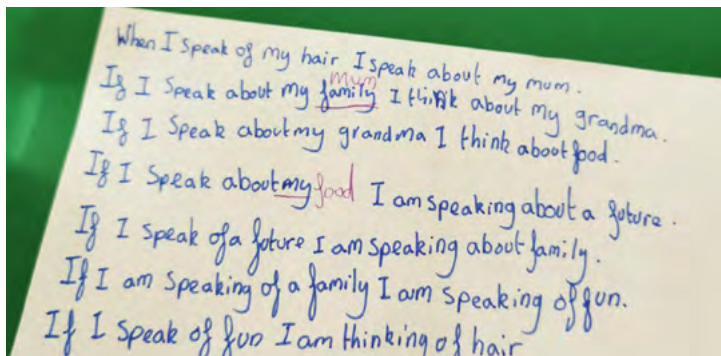 When I speak of my hair I speak about my mum.
mum
If I speak about my family I think about my grandma.
If I speak about my grandma I think about food.
If I speak about my food I am speaking about a future.
If I speak of a future I am speaking about family.
If I am speaking of a family I am speaking of fun.
If I speak of fun I am thinking of hair